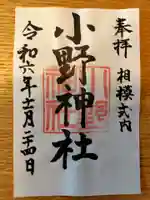 奉拝 相模式内
小野神社
令和六年十一月二十四日